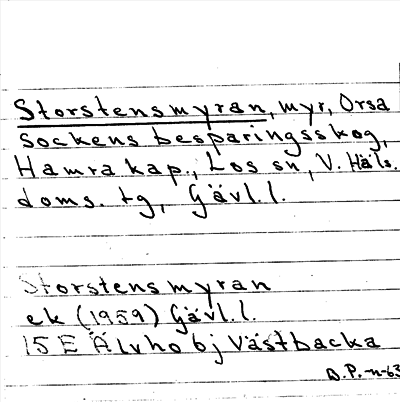 Storstensmyran, myr, Orsa
sockens besparingsskog,
Hamra kap., Los sn, V. Häls.
doms. tg, Gävl.l.
Storstensmyran
ek (1959) Gävl.l.
15E Älvho bj Västbacka
B.P. -n-63